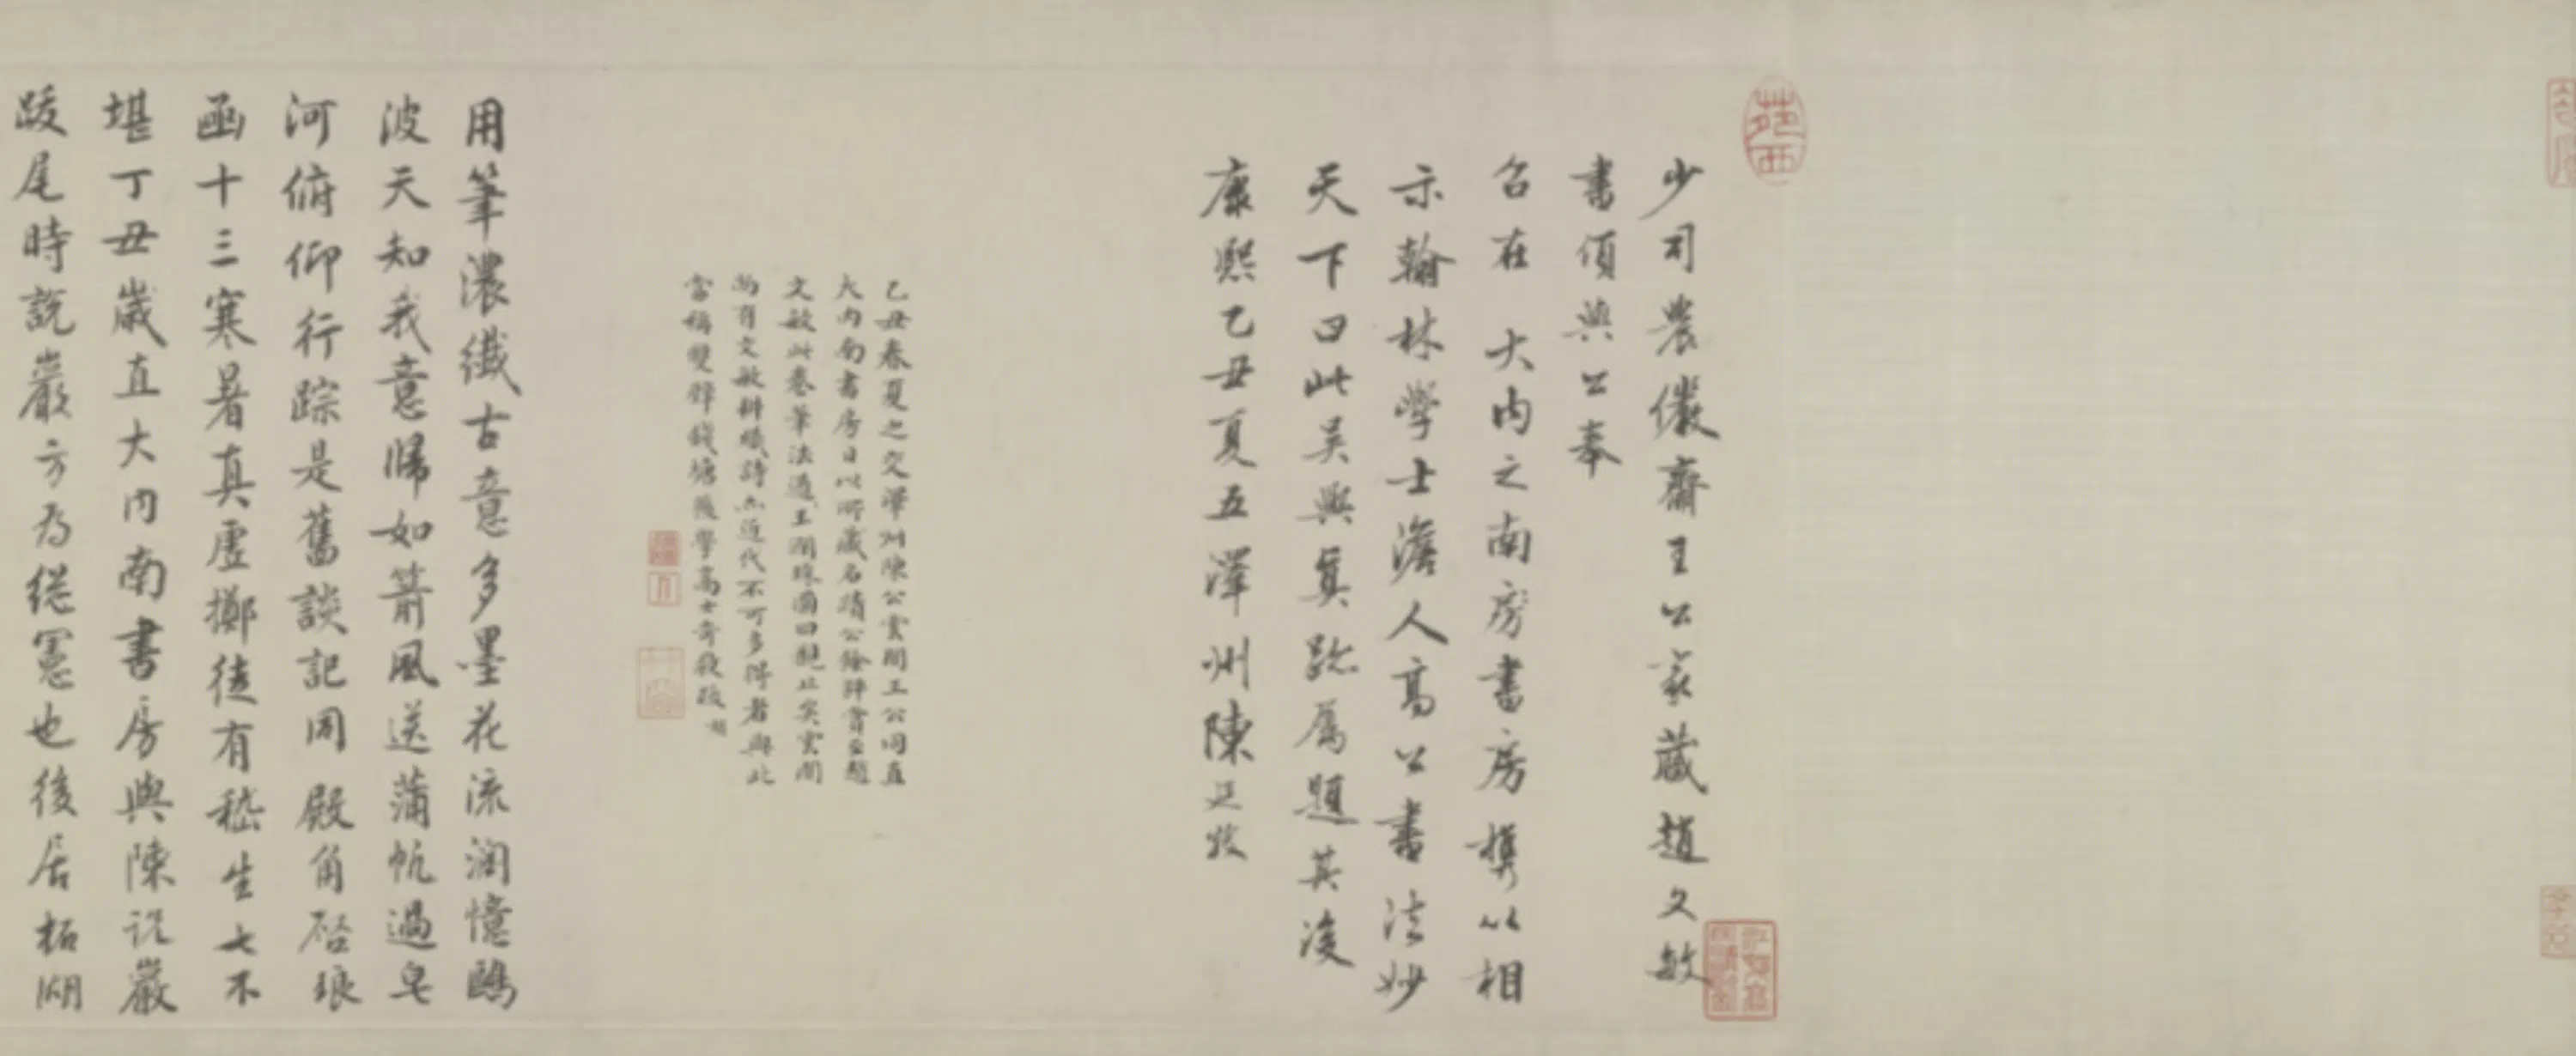 少司農儼齋王公家藏趙文敏
書傾與公奉
召在 大內之南房書房攜以相
示翰林學士澹人高公書法妙
天下曰此吳興真跡屬題其後
康熙乙丑夏五澤州陳廷敬
乙丑春夏之交澤州陳公雲間王公同直
大內南書房日以所藏名蹟公餘評賞並題
文敏此卷筆法過王潤珠圓曰觀止矣雲間
尚有文敏耕織詩亦近代不可多得者與此
當稱雙璧錢塘後學高士奇敬跋
用筆濃纖古意多墨花流潤憶鷗
波天知我意歸如箭風送蒲帆過皂
河俯仰行踪是舊談記同殿角啓琅
函十三寒暑真虛擲徒有嵇生七不
堪丁丑歲直大內南書房與陳說巖
跋尾時說巖方為總憲也後居柘湖
苑西